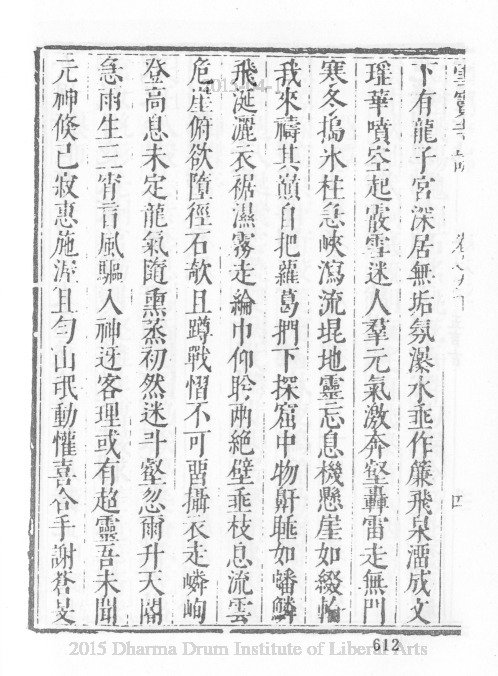 下有龍子宮深居無垢氛瀑水垂作簾飛泉溜成文
瑶華噴空起霰雪迷人羣元氣激奔壑轟雷走無門
寒冬搗氷柱急峽瀉流琨地靈忘息機懸崖如綴
我來禱其巔自把蘿葛捫下探窟中物鼾睡如蟠鱗
飛涎灑衣裾濕霧走綸巾仰聆兩絶壁垂枝息流雲
危崖俯欲墮徑石欹且蹲戰慴不可畱攝衣走嶙峋
登高息未定龍氣隨熏蒸初然迷斗壑忽雨升天閽
急雨生三宵言風驅入神迓客理或有超靈吾未聞
元神倏已寂惠施渥且勻山氓動懽喜合手謝蒼旻
四
612
2015 Dharma Drum Institute of Liberal Arts